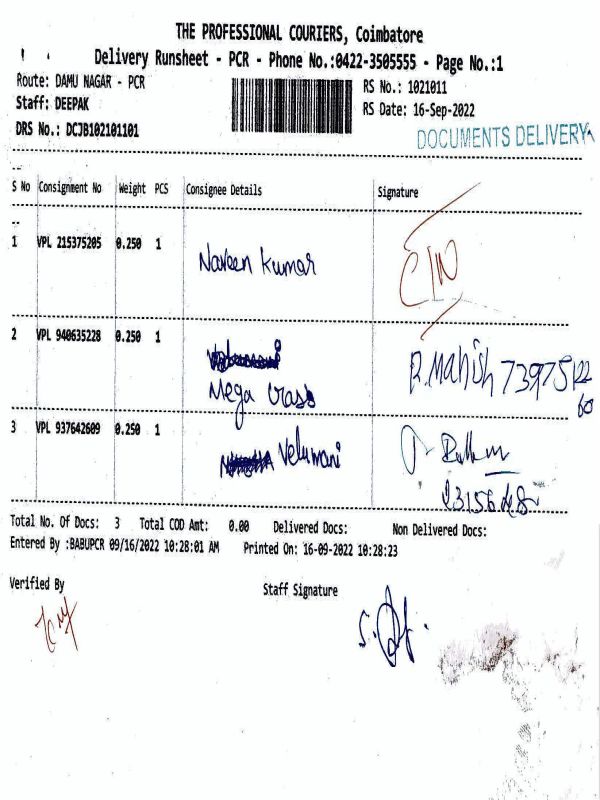 THE PROFESSIONAL COURIERS, Coimbatore
Delivery Runsheet - PCR - Phone No.:0422-3505555 - Page No.:1
Route: DAMU NAGAR - PCR
RS No.: 1021011
Staff: DEEPAK
RS Date: 16-Sep-2022
DRS No.: DCJB102101101
DOCUMENTS DELIVERY
S No Consignment No Weight PCS Consignee Details Signature
1 VPL 215375205 0.250 1 Naveen Kumar
2 VPL 940635228 0.250 1 Mega R.Mahish 73975
3 VPL 937642609 0.250 1 Velumani
Total No. Of Docs: 3 Total COD Amt: 0.00 Delivered Docs: Non Delivered Docs:
Entered By :BABUPCR 09/16/2022 10:28:01 AM Printed On: 16-09-2022 10:28:23
Verified By Staff Signature